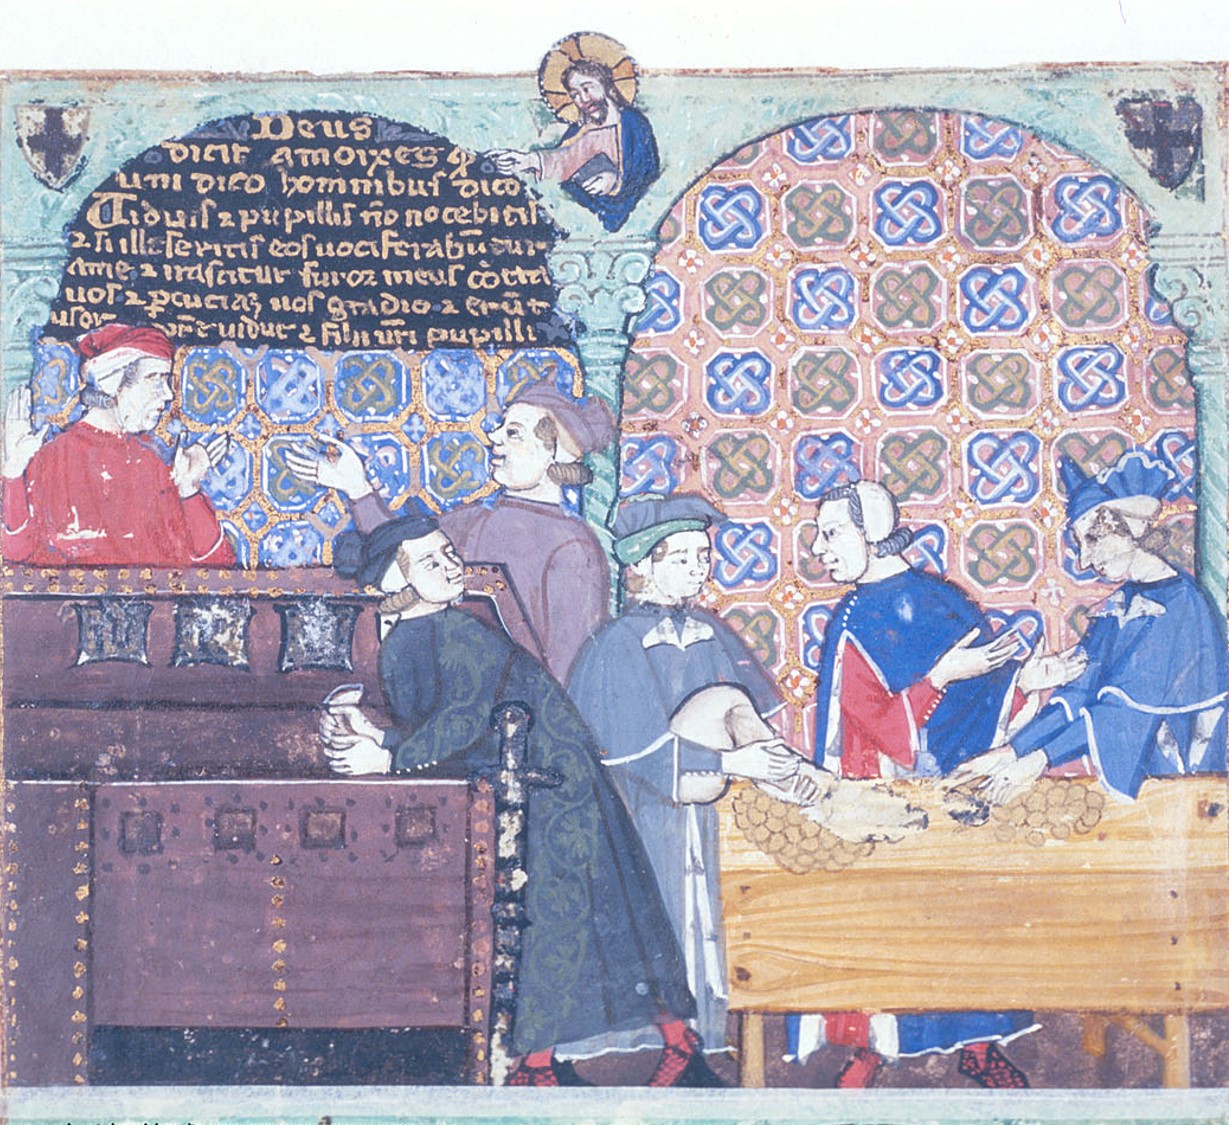 Deus
dicit amoixes q̃
uni dico hominibus dico
Viduis ⁊ pupillis nõ nocebitis
⁊ si illeseritis eos uociferabũ
ame ⁊ irascitur furor meus cõtra
uos ⁊ ꝑcuciaʒ uos gladio ⁊ erũt
uidue ⁊ filii ur̃i pupilli